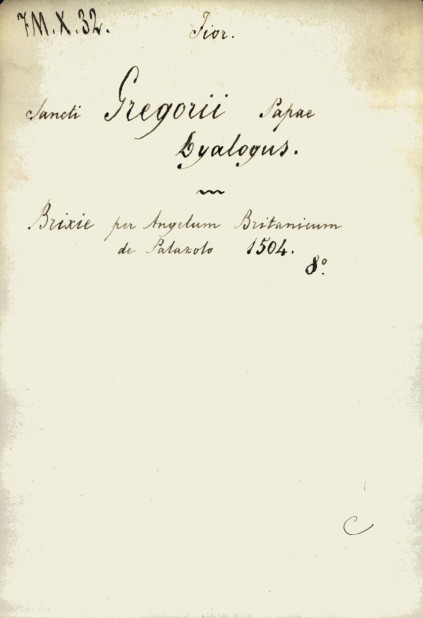 7M.X.32.
Fior.
Sancti Gregorii Papae
Dyalogus.
Brixie per Angelum Britanicum
de Palazolo 1504.
8°
C